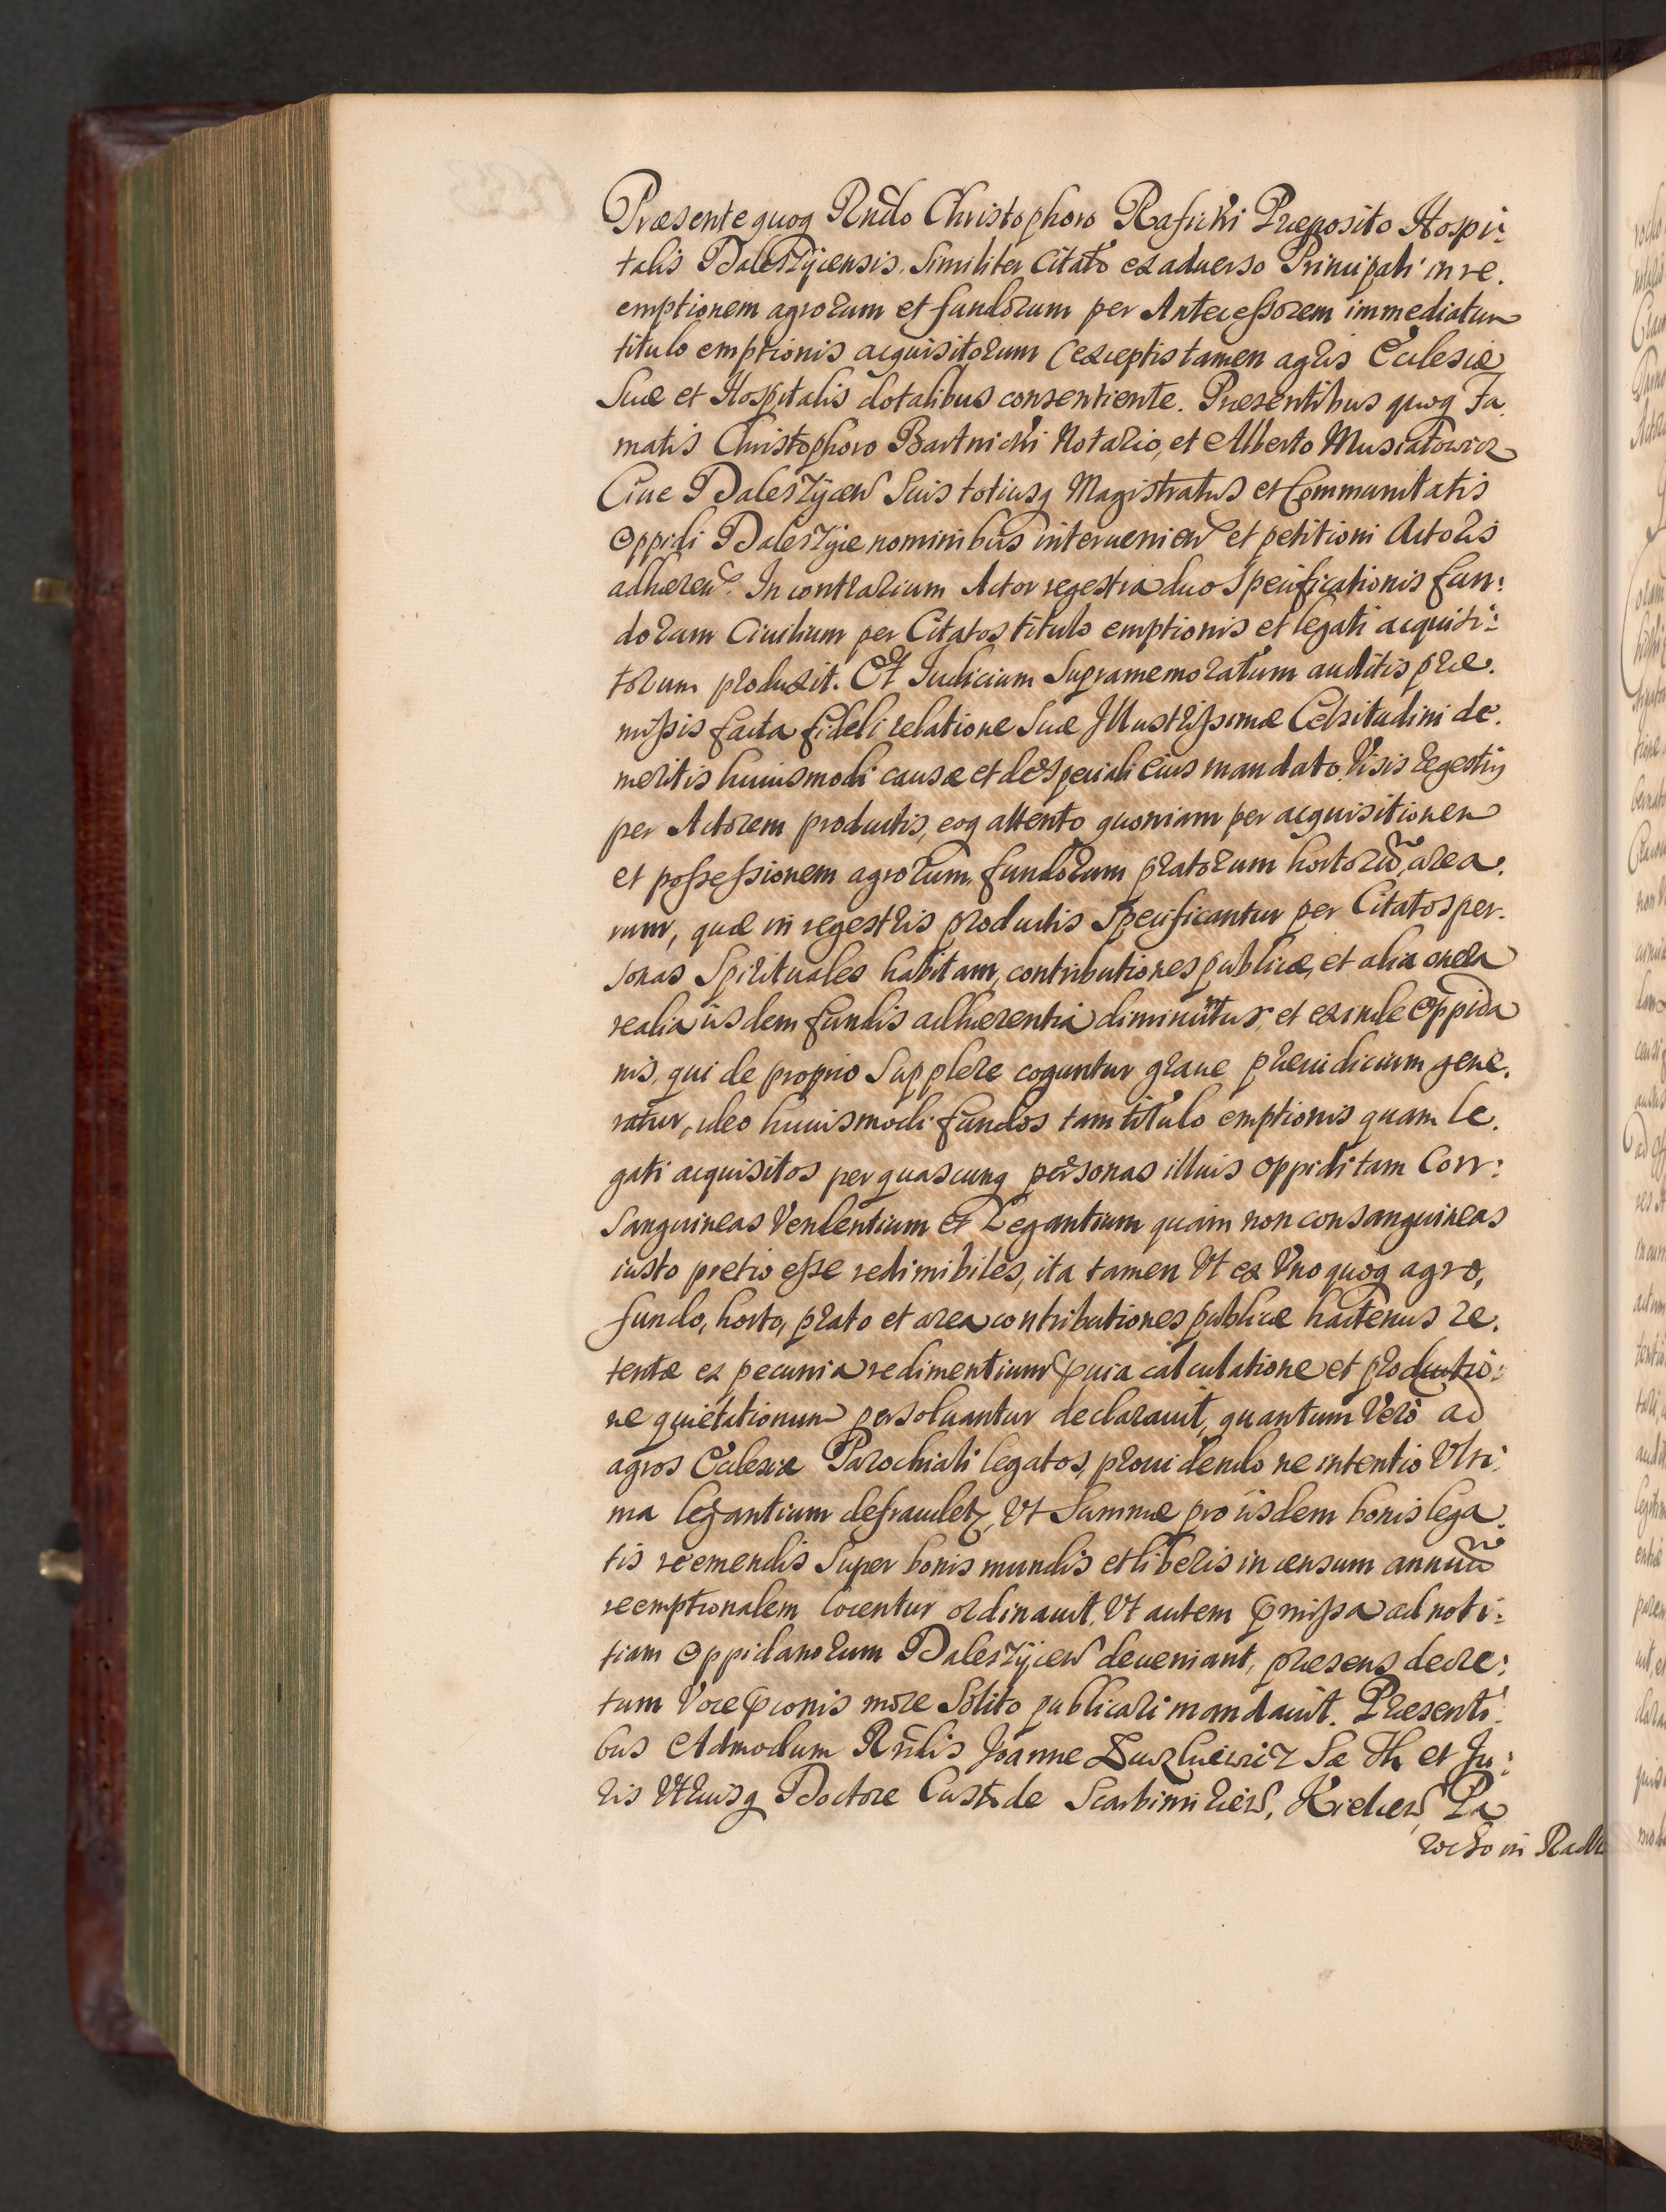 Præsente quoq Rndo Christophoro Rasicki Præposito Hospi:
talis Daleszÿcensis, Similiter Citato ex aduerso Principali in re.
emptionem agrorum et fundorum per Antecessorem immediatum
titulo emptionis acquisitorum (exceptis tamen agris Ecclesiæ
Suæ et Hospitalis dotalibus consentiente. Præsentibus quoq Fa.
matis Christophoro Bartnicki Notario, et Alberto Musiatowicz
Ciue Daleszÿcen Suis totiusq Magistratus et Communitatis
Oppidi Daleszÿce nominibus interuenien et petitioni Actoris
adhæren. In contrarium Actor regestra duo Specificationis fun:
dorum Ciuilium per Citatos titulo emptionis et legati acquisi:
torum produxit. Et Iudicium Supramemoratum auditis præ.
missis facta fideli relatione Suæ Illustrissimæ Celsitudini de.
meritis huiusmodi causæ et de speciali eius mandato. Visis regestris
per Actorem productis, eoq attento quoniam per acquisitionem
et possessionem agrorum, fundorum pratorum hortorũ, area.
rum, quæ in regestris productis Specificantur per Citatos per.
sonas Spirituales habitam, contributiones publicæ, et alia onera
realia iisdem fundis adhærentia diminuntur, et exinde Oppida
nis, qui de proprio Supplere coguntur graue præiudicium gene.
ratur, ideo huiusmodi fundos tam titulo emptionis quam le.
gati acquisitos per quascunq personas illius oppidi tam Con:
sanguineas Vendentium et Legantium quàm non consanguineas
iusto pretio esse redimibiles, ita tamen Vt ex Vnoquoq agro,
fundo, horto, prato et area contributiones publicæ hactenus re.
tentæ ex pecunia redimentium ꝑuia calculatione et productio:
ne quietationum persoluantur declarauit, quantum Verò ad
agros Ecclesiæ Parochiali legatos, prouidendo ne intentio Vlti:
ma legantium defraudetz, Vt Summæ pro iisdem bonis lega.
tis reemendis Super bonis mundis et liberis in censum annuũ
reemptionalem locentur ordinauit. Vt autem ꝑmissa ad noti:
tiam Oppidanorum Daleszÿcen deueniant, præsens decre:
tum Voce ꝑconis more Solito publicari mandauit. Præsenti:
bus Admodum Rñdis Joanne Sæ Th et Ju:
ris Vtriusq Doctore Custode Scarbimirien, Kielcen, Pa
rocho in